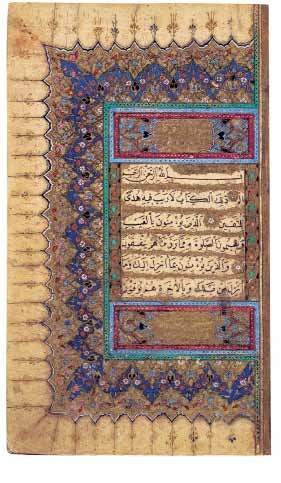 بسم الله الرحمن الرحيم
الم ذلك الكتاب لا ريب فيه هدى
للمتقين الذين يؤمنون بالغيب
ويقيمون الصلوة ومما رزقناهم ينفقون
والذين يؤمنون بما انزل اليك وما
انزل من قبلك وبالاخرة هم يوقنون